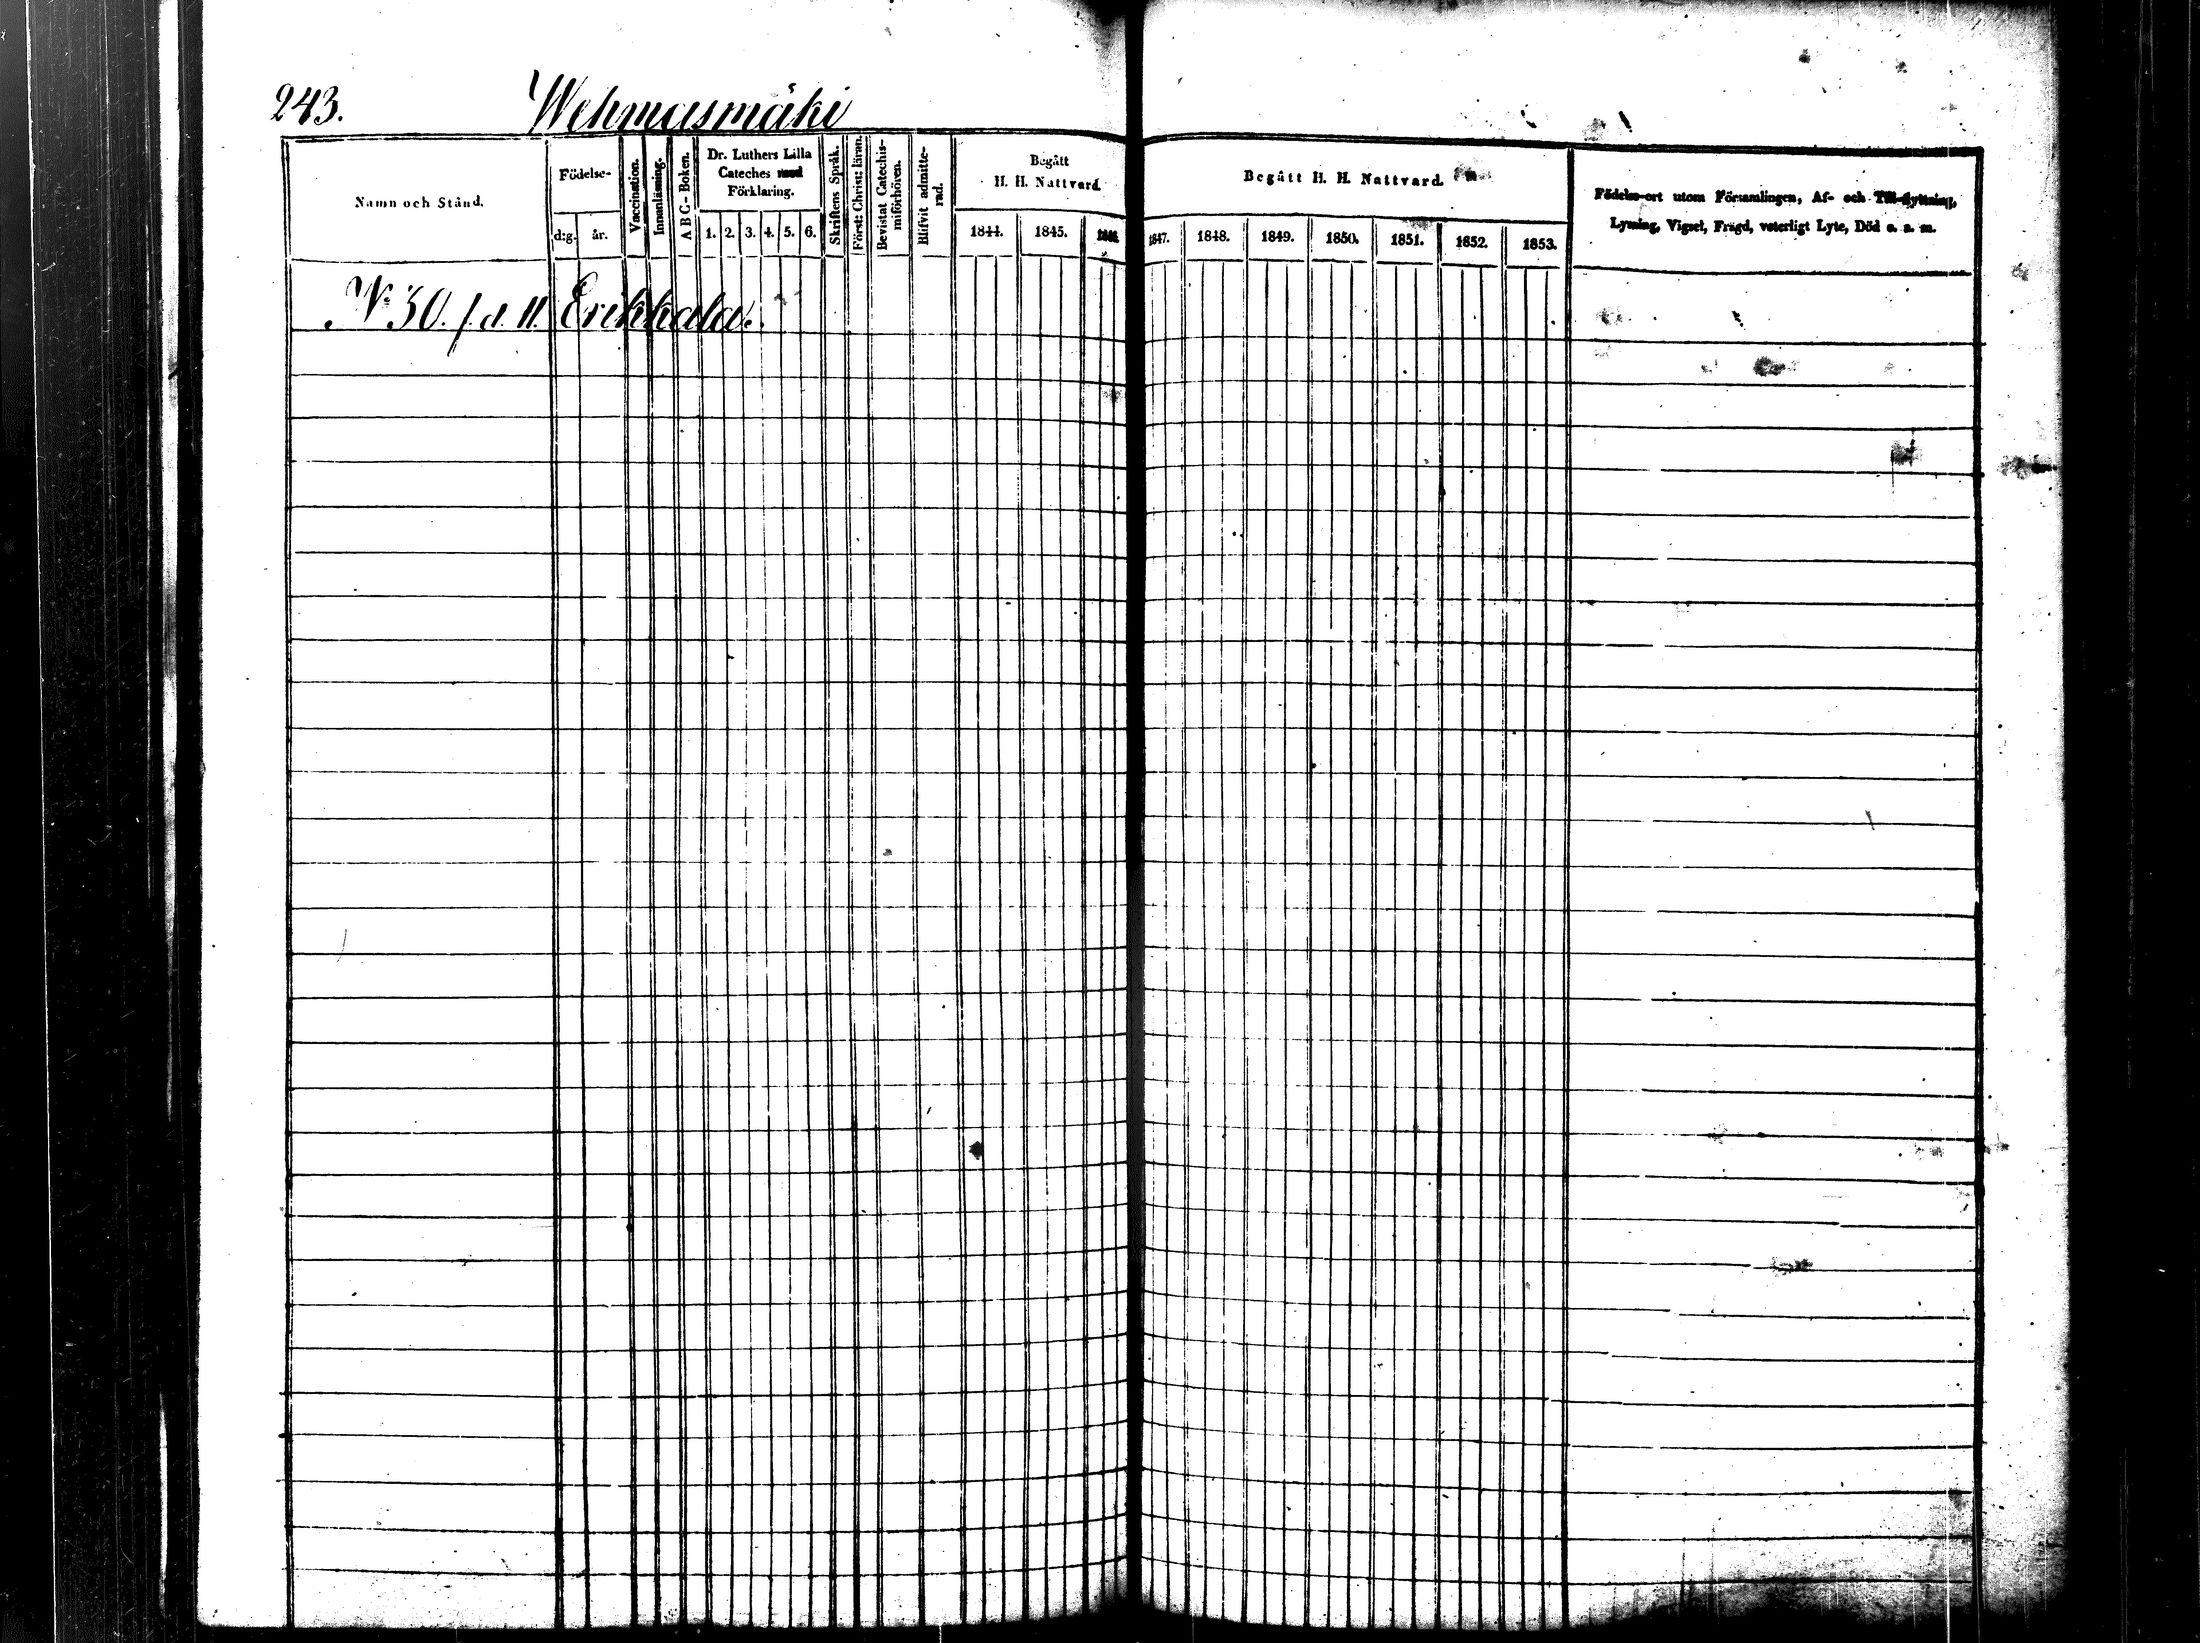 243. Wehmasmäki
Namn och Stånd.
Födelse-
d:g. år.
Vaccination.
Innanläsning.
A B C - Boken.
Dr. Luthers Lilla
Cateches med
Förklaring.
1. 2. 3. 4. 5. 6.
Skriftens Språk.
Först: Christ: läran.
Bevistat Catechis-
miförhören.
Blifvit admitte-
rad.
Begått
H. H. Nattvard.
1844. 1845. 1846.
Begått H. H. Nattvard.
1847. 1848. 1849. 1850. 1851. 1852. 1853.
Födelse-ort utom Församlingen, Af- och Till-flyttning,
Lysning, Vigsel, Frägd, veterligt Lyte, Död o. s. m.
N:o 30. f. d. 11. Erikkala.